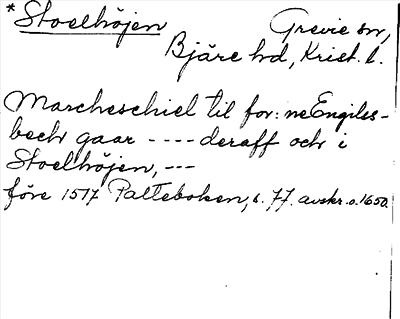 *Stoelhöjen Grevie sn,
Bjäre hd, Krist. l.
Marcheschiel til for:ne Engilss-
bech gaar ---- deraff och i
Stoelhöjen, ---
före 1517 Palteboken, s. 77. avskr. o. 1650.